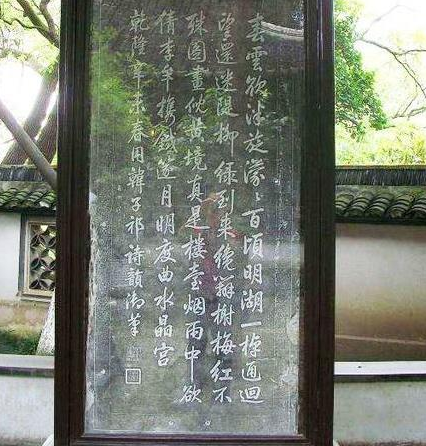 春雲欲泮旋濛〻百頃明湖一棹通迴
望還迷隄柳綠到來纔辦榭梅紅不
殊圖畫倪黃境真是樓臺烟雨中欲
倩李牟攜鐵篴月明度曲水晶宮
乾隆辛未春用韓子祁詩韻御筆